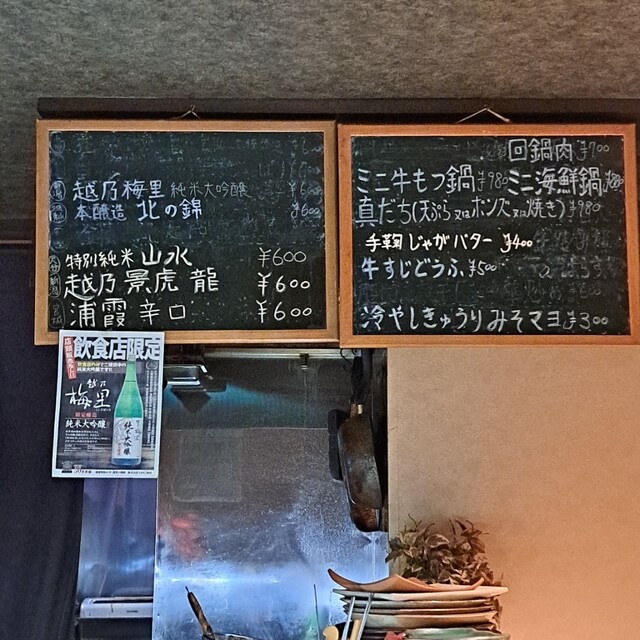 越乃梅里 純米大吟醸 ¥600
本醸造 北の錦 ¥600
特別純米 山水 ¥600
越乃景虎 龍 ¥600
浦霞 辛口 ¥600
回鍋肉 ¥700
ミニ牛もつ鍋 ¥980 ミニ海鮮鍋 ¥980
真だち(天ぷら又はポンズ又は焼き) ¥980
手鞠じゃがバター ¥400
牛すじどうふ ¥500
冷やしきゅうりみそマヨ ¥300
飲食店限定
越乃
梅里
純米大吟醸
純米大吟醸